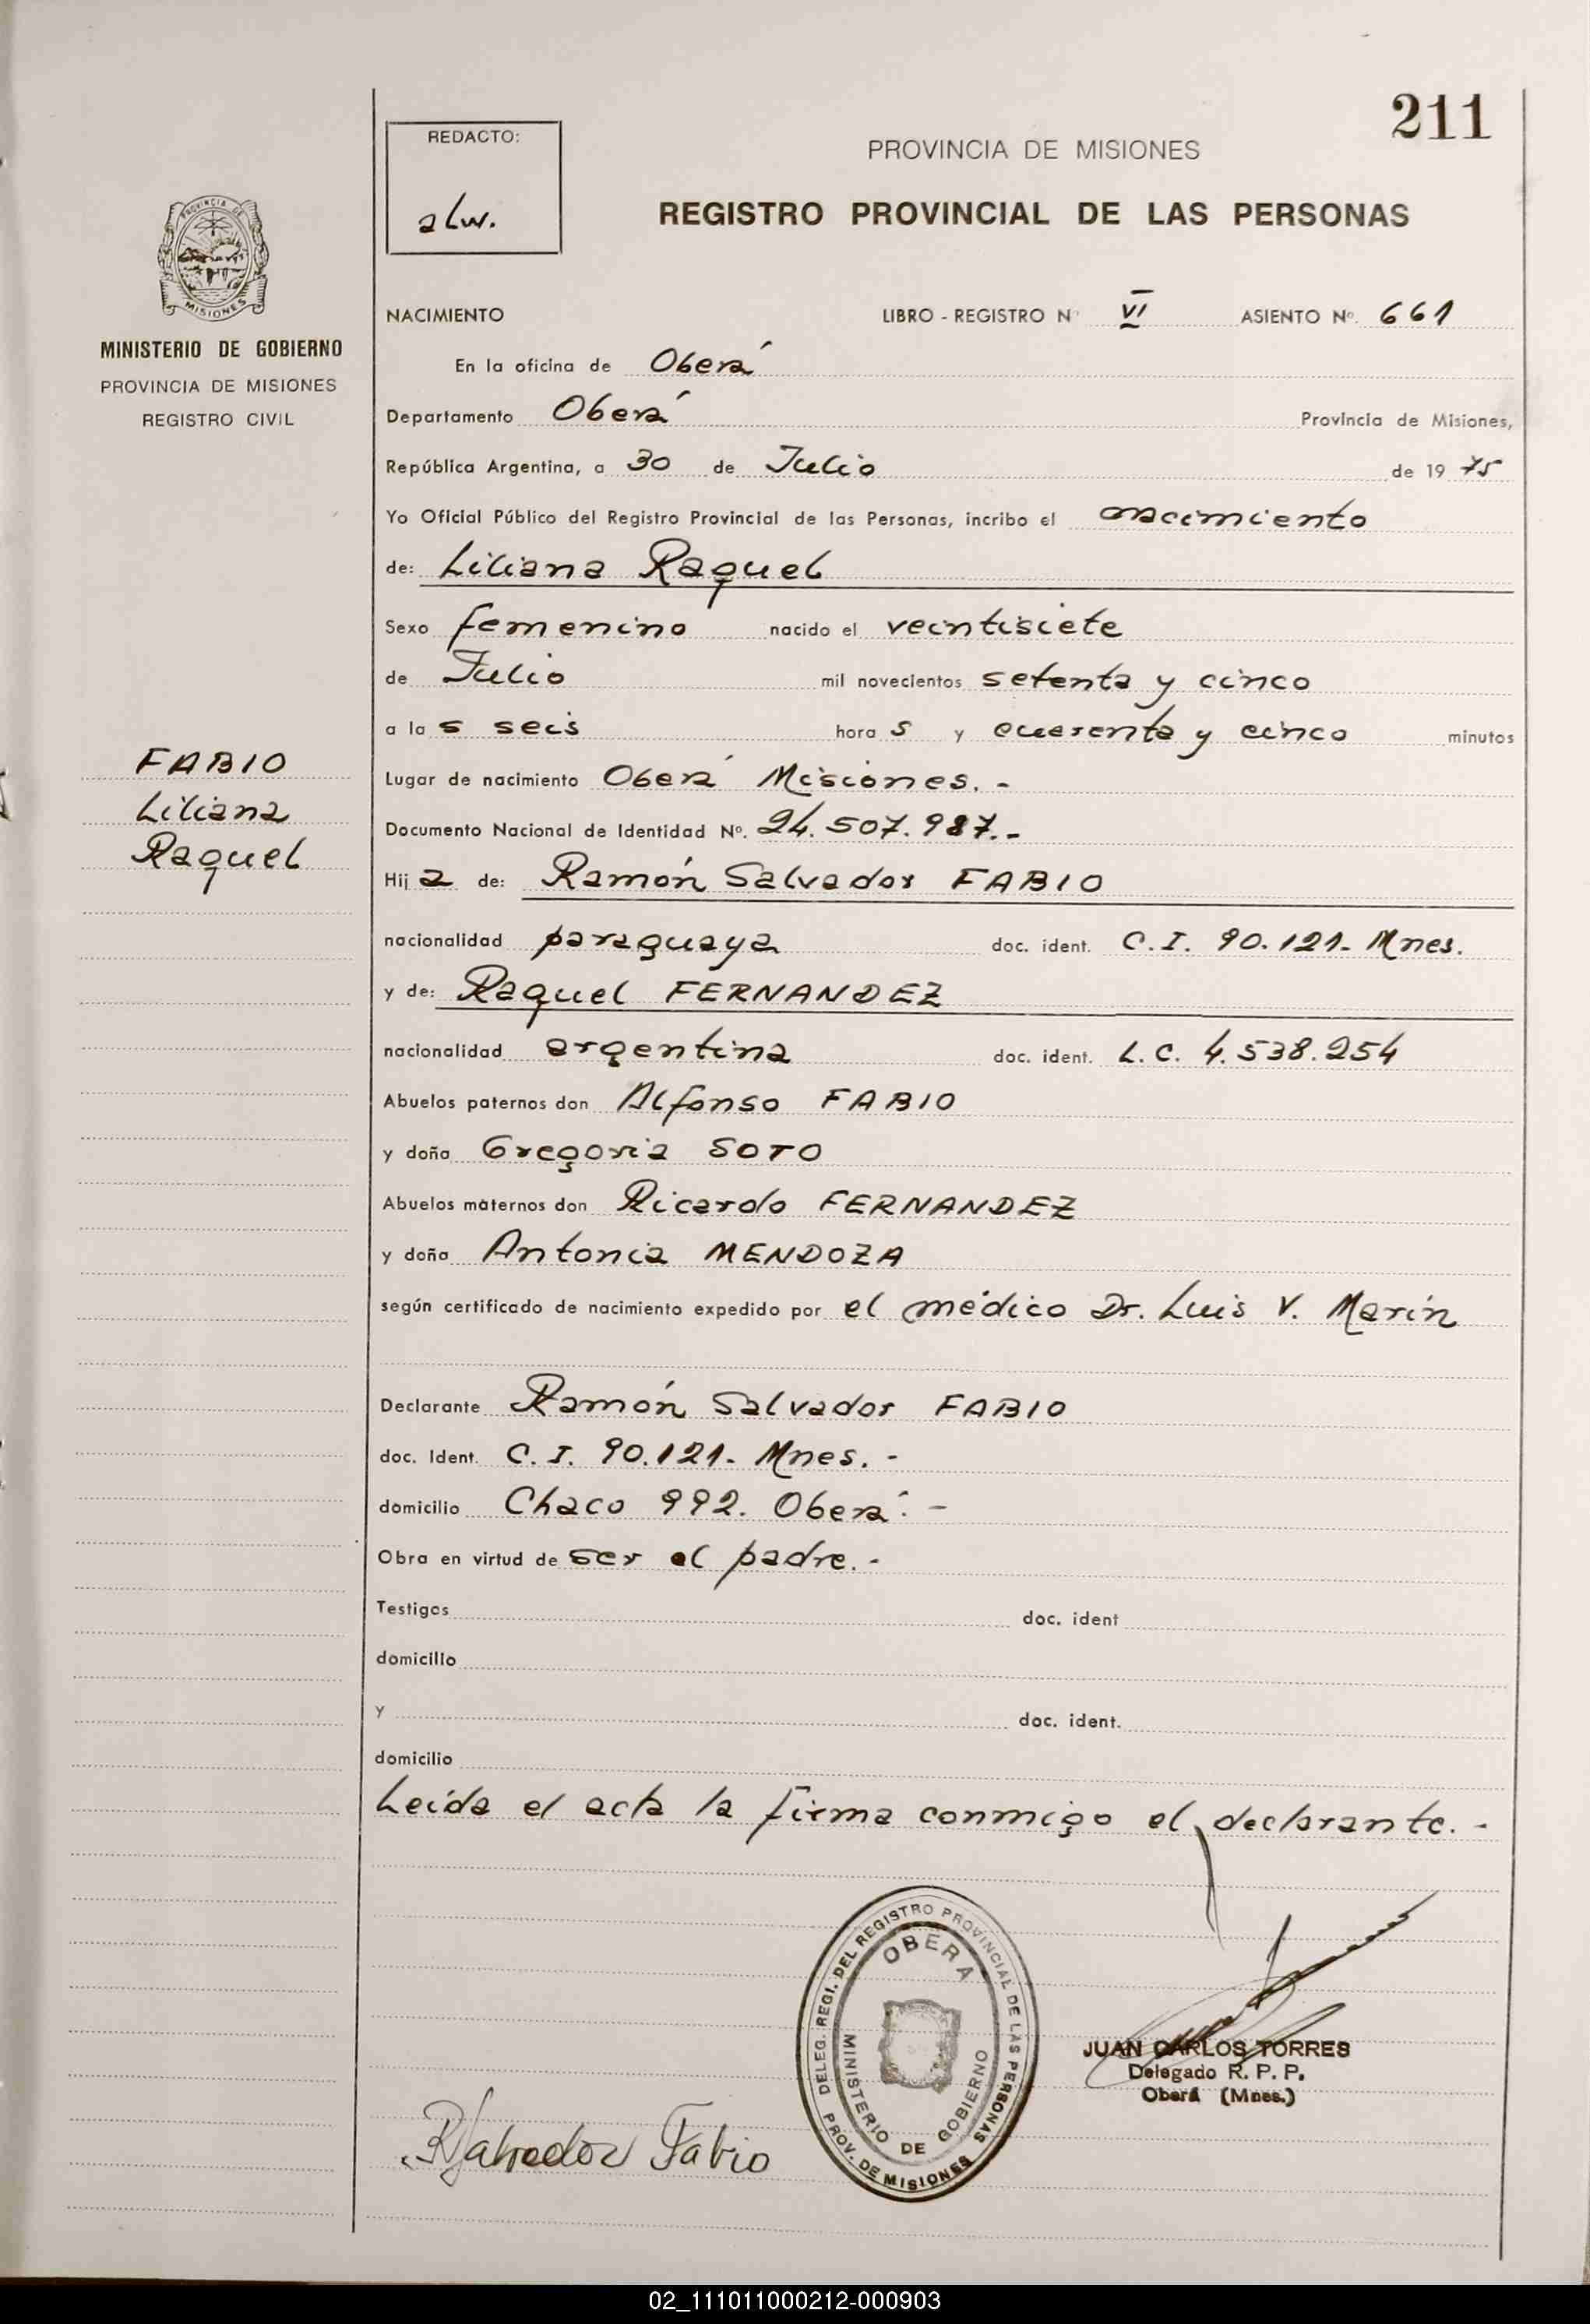 211
REDACTO:
alw.
PROVINCIA DE MISIONES
REGISTRO PROVINCIAL DE LAS PERSONAS
PROVINCIA DE
MISIONES
MINISTERIO DE GOBIERNO
PROVINCIA DE MISIONES
REGISTRO CIVIL
NACIMIENTO LIBRO - REGISTRO Nº VI ASIENTO Nº. 661
En la oficina de Oberá
Departamento Oberá Provincia de Misiones,
República Argentina, a 30 de Julio de 19 75
Yo Oficial Público del Registro Provincial de las Personas, incribo el nacimiento
de: Liliana Raquel
Sexo femenino nacido el veintisiete
de Julio mil novecientos setenta y cinco
a la s seis hora s y cuarenta y cinco minutos
FABIO
Liliana
Raquel
Lugar de nacimiento Oberá Misiones.-
Documento Nacional de Identidad Nº. 24.507.987.-
Hij a de: Ramón Salvador FABIO
nacionalidad paraguaya doc. ident. C.I. 90.121- Mnes.
y de: Raquel FERNANDEZ
nacionalidad argentina doc. ident. L.C. 4.538.254
Abuelos paternos don Alfonso FABIO
y doña Gregoria SOTO
Abuelos maternos don Ricardo FERNANDEZ
y doña Antonia MENDOZA
según certificado de nacimiento expedido por el médico Dr. Luis V. Marín
Declarante Ramón Salvador FABIO
doc. Ident. C.I. 90.121- Mnes.-
domicilio Chaco 992. Oberá.-
Obra en virtud de ser el padre.-
Testigos doc. ident
domicilio
y doc. ident.
domicilio
Leída el acta la firma conmigo el declarante.-
DELEG. REGI. DEL REGISTRO PROVINCIAL DE LAS PERSONAS
OBERA
MINISTERIO DE GOBIERNO
PROV. DE MISIONES
JUAN CARLOS TORRES
Delegado R. P. P.
Oberá (Mnes.)
R Salvador Fabio
02_111011000212-000903